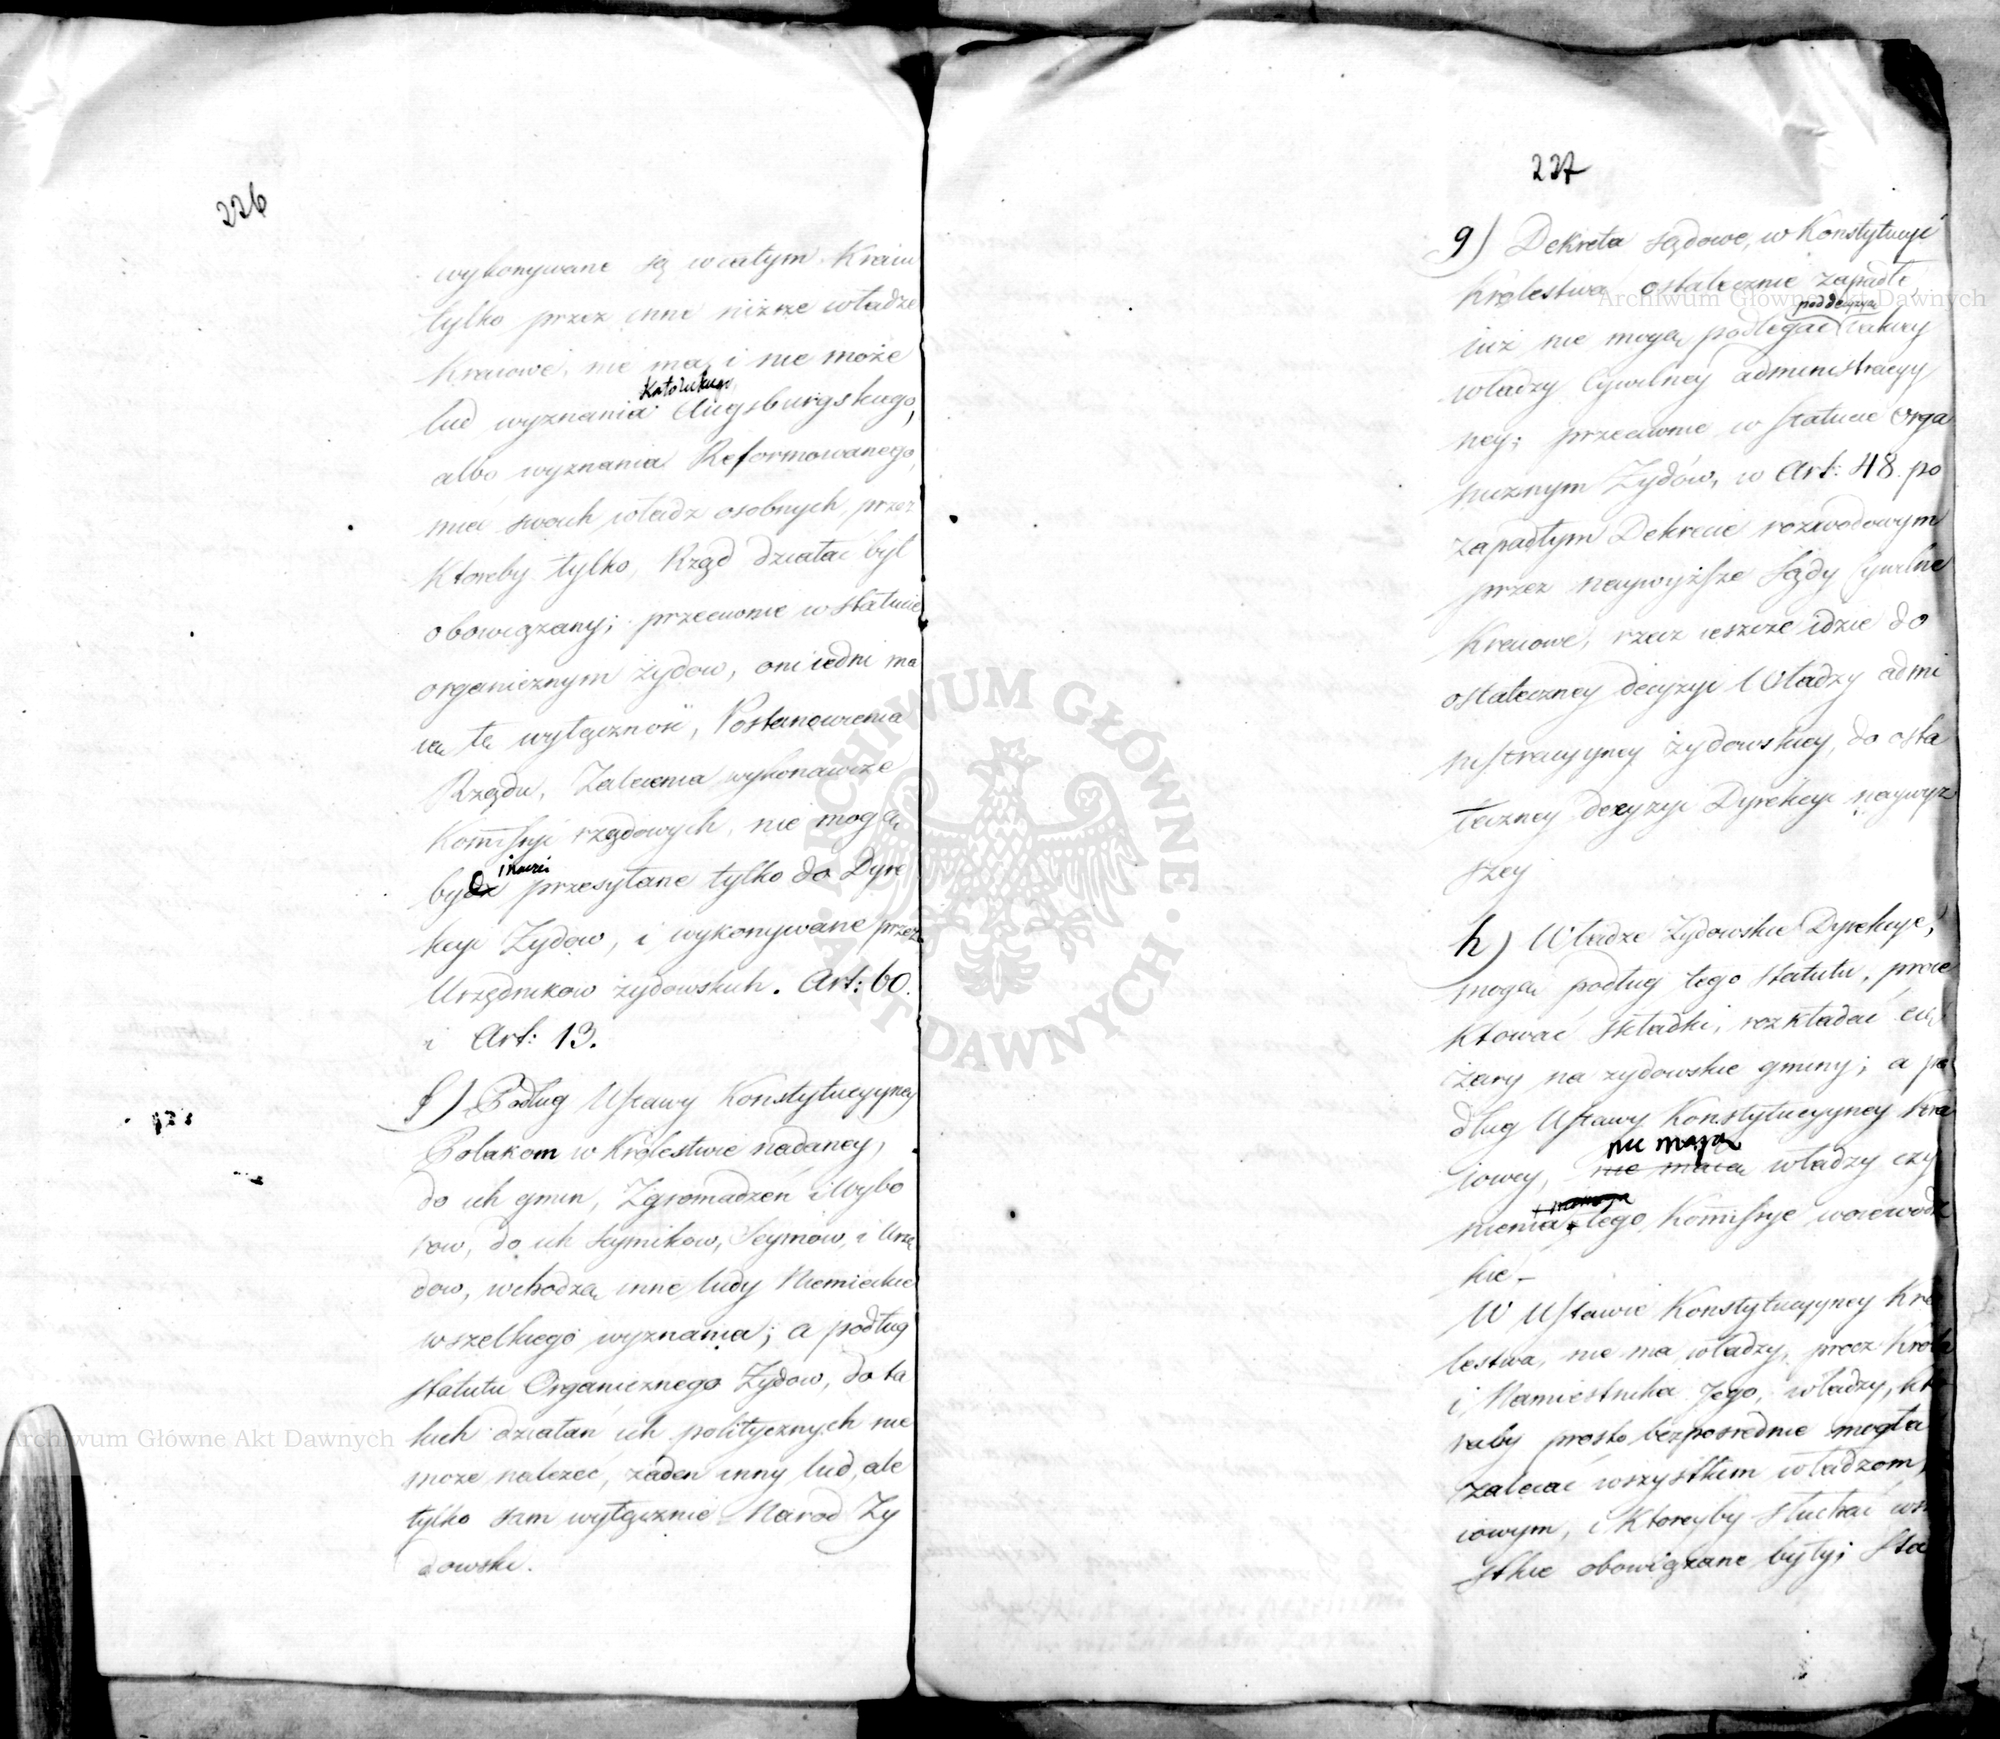 226
wykonywane są w całym Kraiu
tylko przez inne niższe władze
Kraiowe, nie ma, i nie może
Katolickiego,
lud wyznania Augsburgskiego,
albo wyznania Reformowanego,
mieć swoich władz osobnych, przez
Ktoreby tylko, Rząd działać był
obowiązany; przeciwnie w statucie
organicznym żydow, oni iedni ma
ią tę wyłączność, Postanowienia
Rządu, Zalecenia wykonawcze
Kommissyi rządowych, nie mogą
inaczej
bydź przesyłane tylko do Dyre
kcyi Żydow, i wykonywane przez
Urzędnikow żydowskich. Art: 60.
i Art: 13.
f) Podług Ustawy Konstytucyyney
Polakom w Krolestwie nadaney,
do ich gmin, Zgromadzeń i Wybo
row, do ich Seymikow, Seymow, i Urzę
dow, wchodzą inne ludy Niemieckie
wszelkiego wyznania; a podług
statutu Organicznego Żydow, do ta
kich działań ich politycznych nie
może należeć, żaden inny lud, ale
tylko sam wyłącznie Narod Ży
dowski.
237
g) Dekreta sądowe, w Konstytucyi
Krolestwa ostatecznie zapadłe
pod decyzyą
iuż nie mogą podlegać żadney
władzy Cywilney administracyy
ney; przeciwnie w Statucie Orga
nicznym Żydów, w Art: 48. po
zapadłym Dekrecie rozwodowym
przez naywyższe Sądy Cywilne
Kraiowe, rzecz ieszcze idzie do
ostateczney decyzyi Władzy admi
nistracyyney żydowskiey, do osta
teczney decyzyi Dyrekcyi naywyż
szey
h) Władze Żydowskie Dyrekcye,
mogą podług tego statutu, proie
ktować składki, rozkładać cię
żary na żydowskie gminy; a po
dług Ustawy Konstytucyyney Kra
nie mają
iowey, nie maią władzy czy
nienia tego Kommissye woiewodz
kie –
W Ustawie Konstytucyyney Kro
lestwa, nie ma władzy, procz Krola
i Namiestnika Jego, władzy, kto
raby prosto bezposrednie mogła
zalecać wszystkim władzom,
iowym, i Ktoreyby słuchać wsz
stkie obowiązane były; Sta